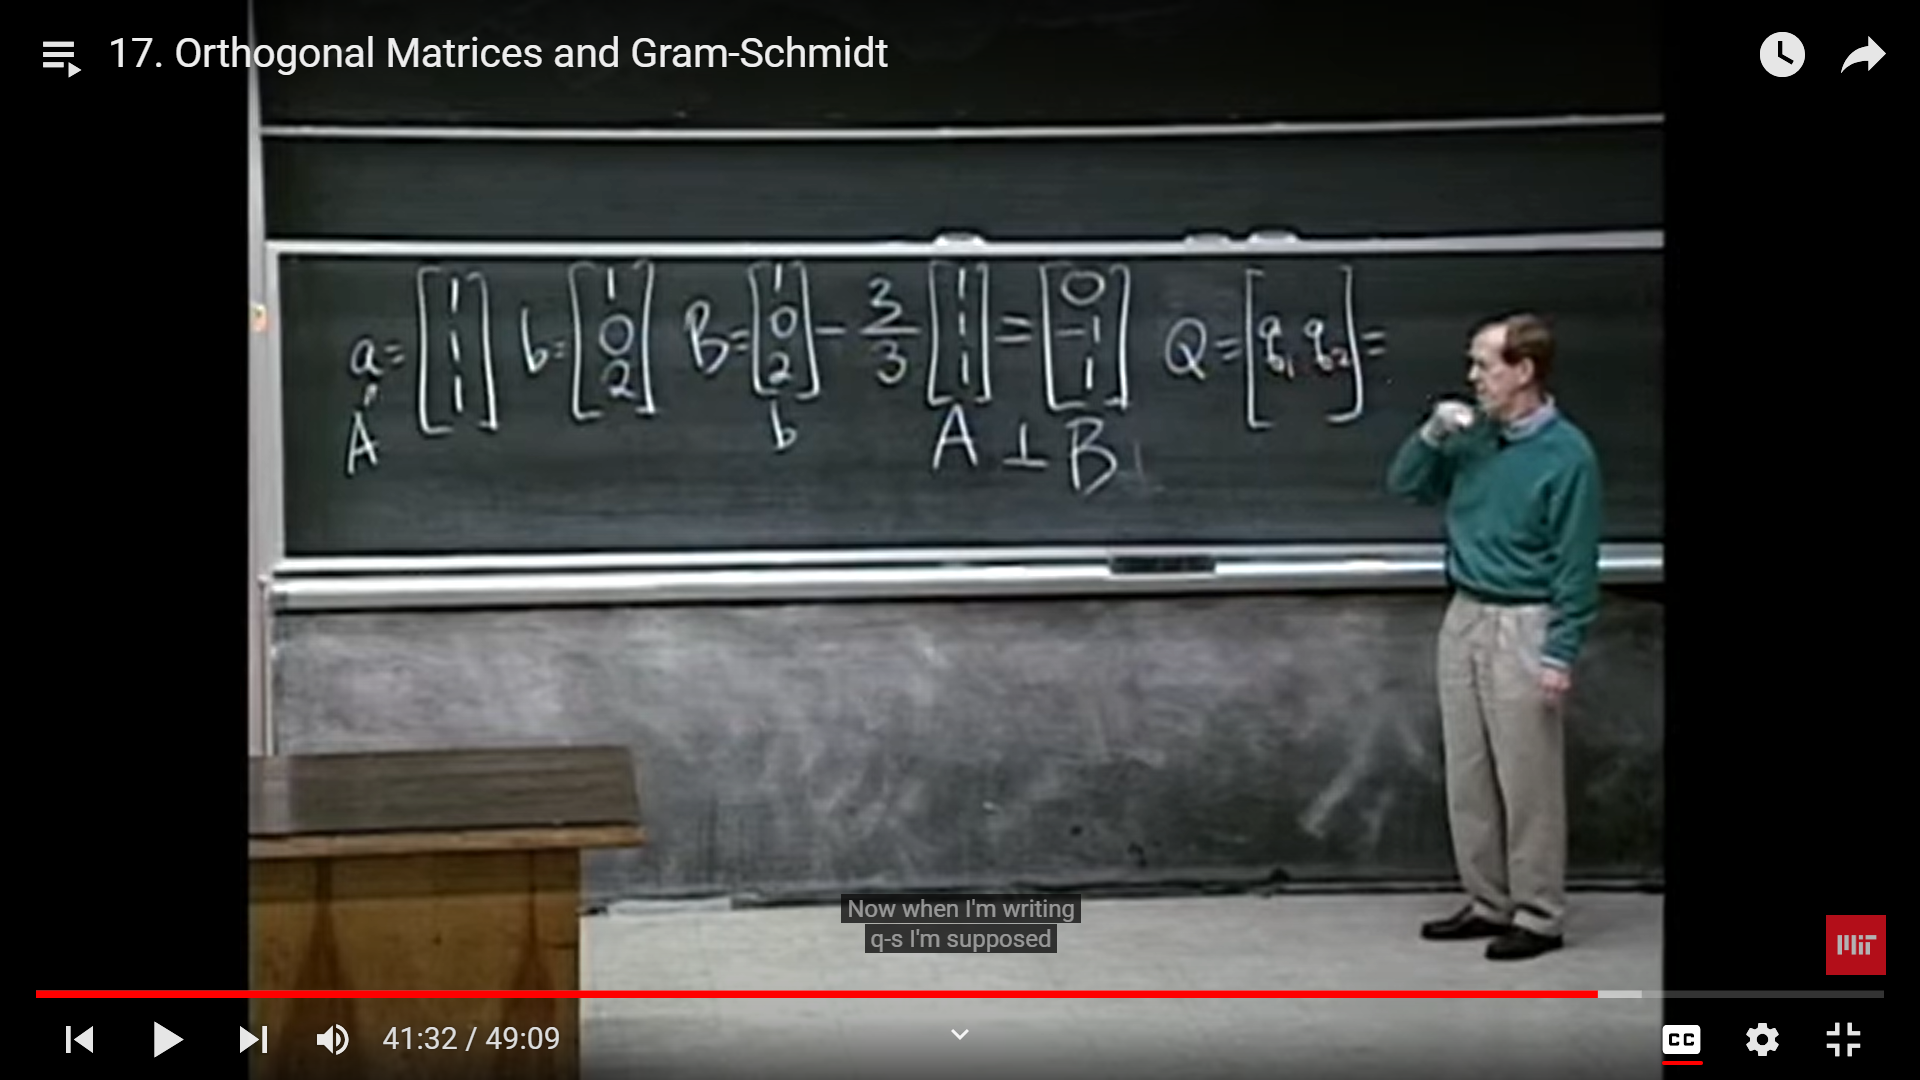 17. Orthogonal Matrices and Gram-Schmidt
a = [1 1 1] b = [1 0 2] B = [1 0 2] - 3/3 [1 1 1] = [0 -1 1] Q = [q₁ q₂] =
A b A ⊥ B
Now when I'm writing
q-s I'm supposed
MiT
41:32 / 49:09
CC